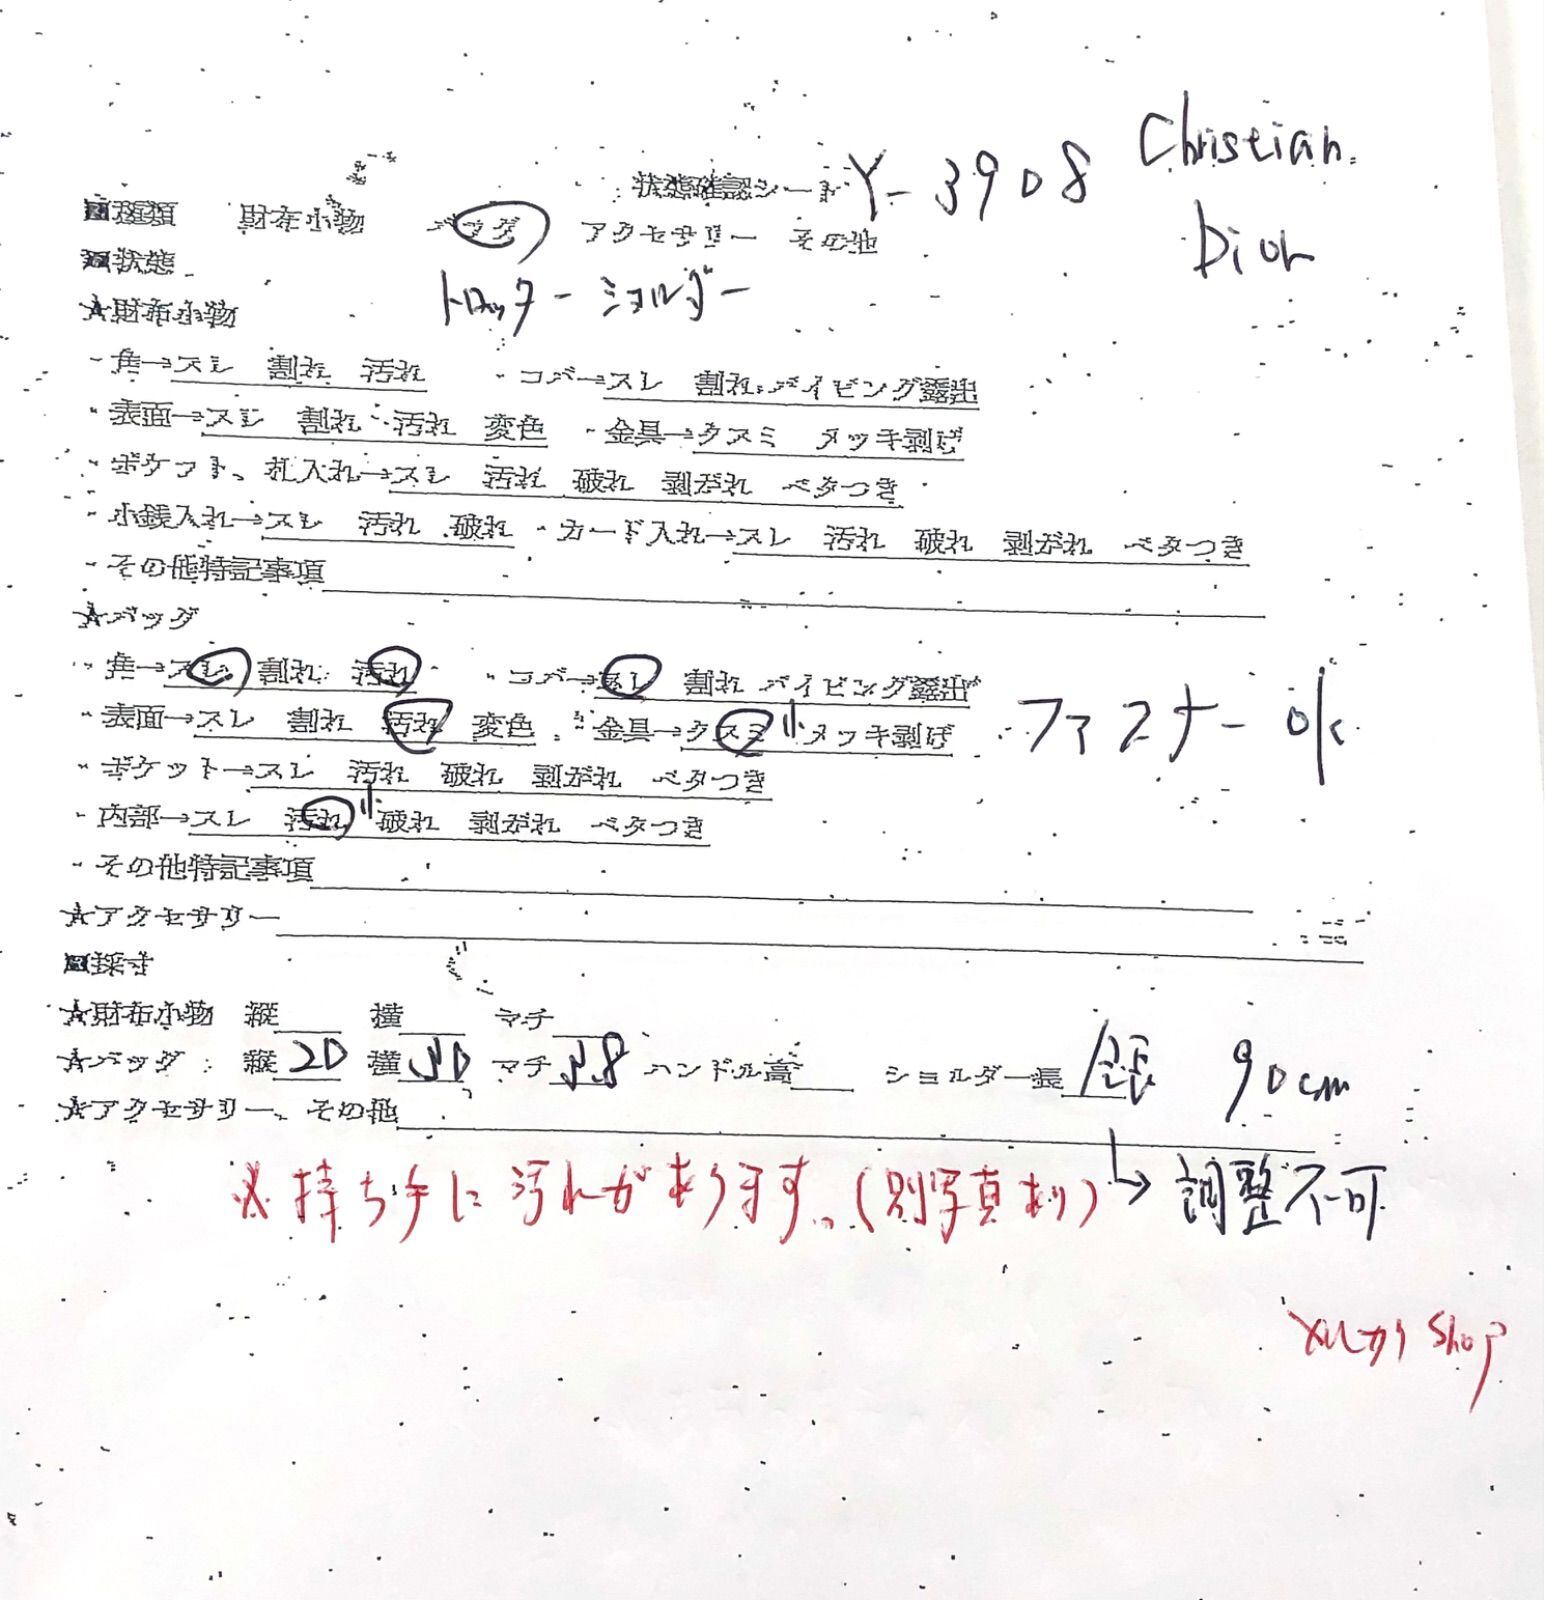 状態確認シート Y-3908 Christian Dior
■種類 財布小物 バッグ アクセサリー その他
■状態
トロッター ショルダー
★財布小物
・角→スレ 割れ 汚れ ・コバ→スレ 割れ パイピング露出
・表面→スレ 割れ 汚れ 変色 ・金具→クスミ メッキ剥げ
・ポケット、札入れ→スレ 汚れ 破れ 剥がれ ベタつき
・小銭入れ→スレ 汚れ 破れ ・カード入れ→スレ 汚れ 破れ 剥がれ ベタつき
・その他特記事項
★バッグ
・角→スレ 割れ 汚れ ・コバ→スレ 割れ パイピング露出
・表面→スレ 割れ 汚れ 変色 ・金具→クスミ 小 メッキ剥げ ファスナー ok
・ポケット→スレ 汚れ 破れ 剥がれ ベタつき
・内部→スレ 汚れ 小 破れ 剥がれ ベタつき
・その他特記事項
★アクセサリー
■採寸
★財布小物 縦 横 マチ
★バッグ 縦 20 横 30 マチ 3.8 ハンドル高 ショルダー長 全長 90cm
★アクセサリー、その他
※持ち手に汚れがあります。(別写真あり) → 調整不可
メルカリ shop